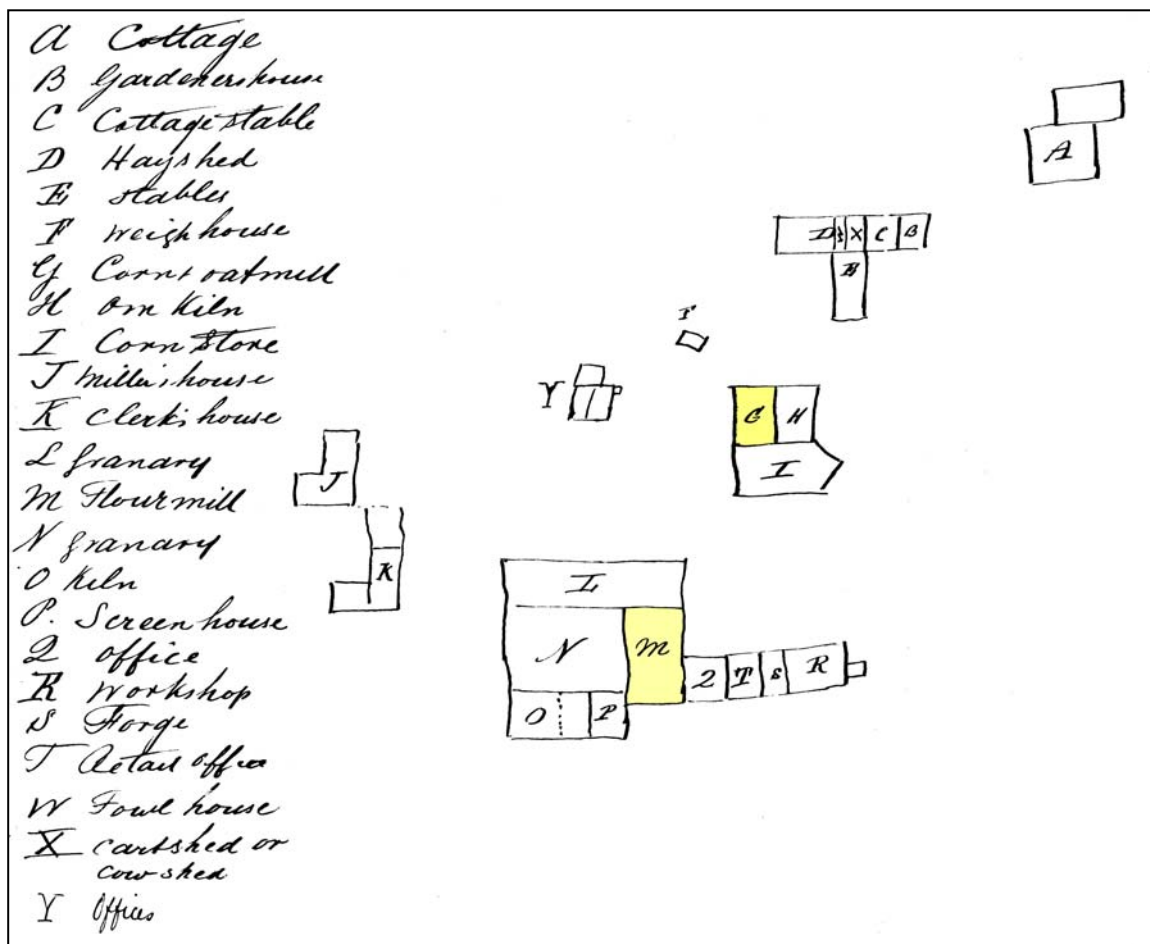 A Cottage
B Gardenershouse
C Cottage stable
D Hayshed
E stables
F weigh house
G Corn & oatmill
H Kiln
I Corn Store
J Miller's house
K clerk's house
L granary
M Flourmill
N granary
O Kiln
P. Screen house
Q office
R Workshop
S Forge
T Retail office
W Fowl house
X cartshed or
cow shed
Y Offices
A
D X C B
E
F
Y
G H
I
J
K
L
N M
Q T S R
O P